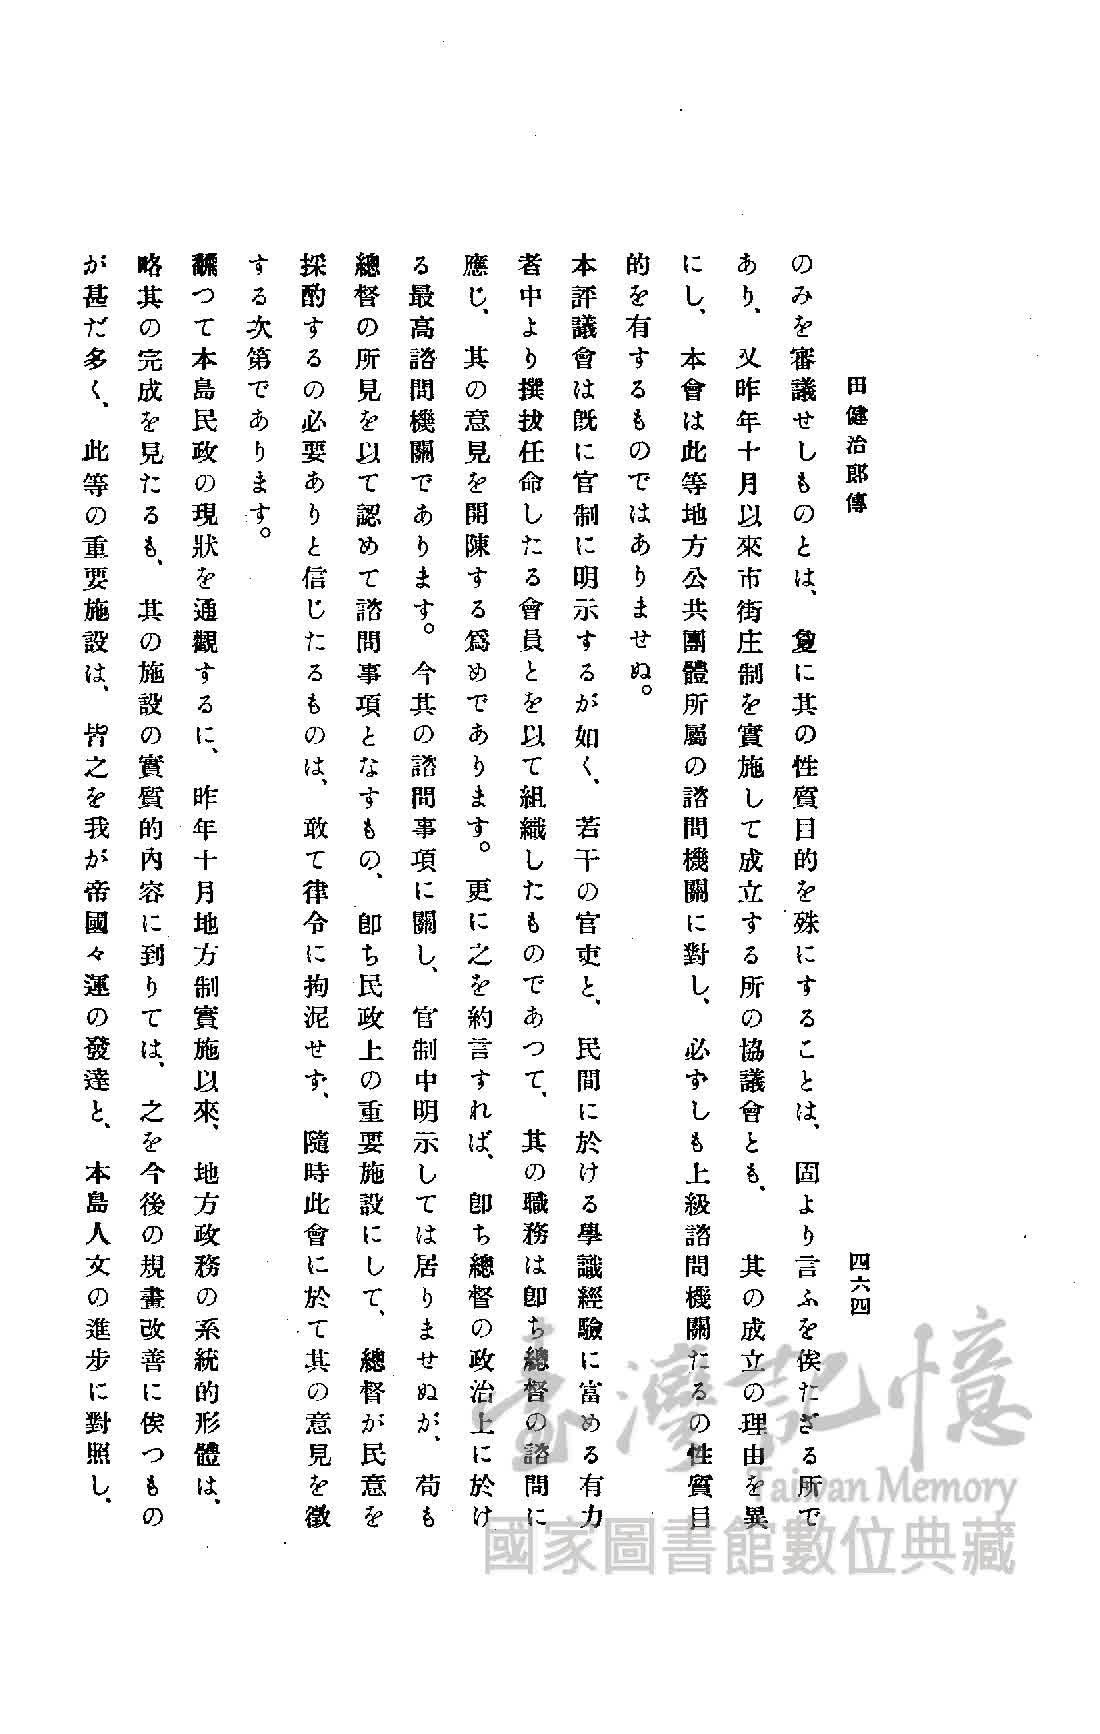 田健治郎傳
四六四
のみを審議せしものとは、敻に其の性質目的を殊にすることは、固より言ふを俟たざる所で
あり、又昨年十月以來市街庄制を實施して成立する所の協議會とも、其の成立の理由を異
にし、本會は此等地方公共團體所屬の諮問機關に對し、必ずしも上級諮問機關たるの性質目
的を有するものではありませぬ。
本評議會は既に官制に明示するが如く、若干の官吏と、民間に於ける學識經驗に富める有力
者中より撰拔任命したる會員とを以て組織したものであつて、其の職務は卽ち總督の諮問に
應じ、其の意見を開陳する爲めであります。更に之を約言すれば、卽ち總督の政治上に於け
る最高諮問機關であります。今其の諮問事項に關し、官制中明示しては居りませぬが、苟も
總督の所見を以て認めて諮問事項となすもの、卽ち民政上の重要施設にして、總督が民意を
採酌するの必要ありと信じたるものは、敢て律令に拘泥せず、隨時此會に於て其の意見を徵
する次第であります。
飜つて本島民政の現狀を通觀するに、昨年十月地方制實施以來、地方政務の系統的形體は、
略其の完成を見たるも、其の施設の實質的內容に到りては、之を今後の規畫改善に俟つもの
が甚だ多く、此等の重要施設は、皆之を我が帝國々運の發達と、本島人文の進步に對照し、
臺灣記憶
Taiwan Memory
國家圖書館數位典藏